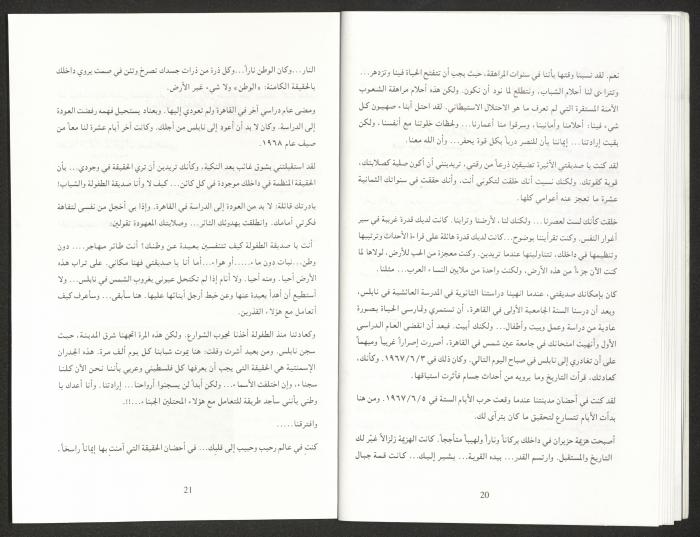 نعم. لقد نسينا وقتها بأننا في سنوات المراهقة، حيث يجب أن تتفتح الحياة فينا وتزدهر...
وتتراءى لنا أحلام الشباب، ونتطلع لما نود أن نكون. ولكن هذه أحلام مراهقة الشعوب
الآمنة المستقرة التي لم تعرف ما هو الاحتلال الاستيطاني. لقد احتل أبناء صهيون كل
شيء فينا: أحلامنا وأمانينا، وسرقوا منا أعمارنا... ولحظات خلوتنا مع أنفسنا، ولكن
بقيت إرادتنا... إيماننا بأن للنصر درباً بكل قوة يحفر... وأن الله معنا.
لقد كنت يا صديقتي الأثيرة تضيقين ذرعاً من رقتي، تريدينني أن أكون صلبة كصلابتك،
قوية كقوتك. ولكنك نسيت أنك خلقت لتكوني أنت. وأنك حققت في سنواتك الثمانية
عشرة ما تعجز عنه أعوامي كلها.
خلقت كأنك لست لعصرنا... ولكنك لنا، لأرضنا وترابنا. كانت لديك قدرة غريبة في سبر
أغوار النفس، وكنت تقرأيننا بوضوح... كانت لديك قدرة هائلة على قراءة الأحداث وترتيبها
وتنظيمها في داخلك، تتناولينها عندما تريدين. وكنت معجزة من الحب للأرض، لولاها لما
كنت الآن جزءاً من هذه الأرض، ولكنت واحدة من ملايين النساء العرب... مثلنا.
كان بإمكانك صديقتي، عندما انهينا دراستنا الثانوية في المدرسة العائشية في نابلس،
وبعد أن درسنا السنة الجامعية الأولى في القاهرة، أن تستمري وتمارسي الحياة بصورة
عادية من دراسة وعمل وبيت وأطفال... ولكنك أبيت. فبعد أن انقضى العام الدراسي
الأول وأنهيت امتحانك في جامعة عين شمس في القاهرة، أصررت إصراراً غريباً ومبهماً
على أن تغادري إلى نابلس في صباح اليوم التالي. وكان ذلك في ١٩٦٧/٦/٣. وكأنك،
كعادتك، قرأت التاريخ وما يرويه من أحداث جسام فآثرت استباقها.
لقد كنت في أحضان مدينتنا عندما وقعت حرب الأيام الستة في ١٩٦٧/٦/٥. ومن هنا
بدأت الأيام تتسارع لتحقيق ما كان يتراءى لك.
أصبحت هزيمة حزيران في داخلك بركاناً وناراً ولهيباً متأججاً. كانت الهزيمة زلزالاً غيّر لك
التاريخ والمستقبل. وارتسم القدر... بيده القوية... يشير إليك... كانت قمة جبال
20
النار... وكان الوطن ناراً... وكل ذرة من ذرات جسدك تصرخ وتئن في صمت يروي داخلك
بالحقيقة الكامنة: «الوطن» ولا شيء غير الأرض.
ومضى عام دراسي آخر في القاهرة ولم تعودي إليها. وبعناد يستحيل فهمه رفضت العودة
إلى الدراسة. وكان لا بد أن أعود إلى نابلس من أجلك. وكانت آخر أيام عشرة لنا معاً من
صيف عام ١٩٦٨.
لقد استقبلتني بشوق غائب بعد النكبة، وكأنك تريدين أن تري الحقيقة في وجودي... بأن
الحقيقة المنظمة في داخلك موجودة في كل كائن... كيف لا وأنا صديقة الطفولة والشباب!
بادرتك قائلة: لا بد من العودة إلى الدراسة في القاهرة. وإذا بي أخجل من نفسي لتفاهة
فكرتي أمامك. وانطلقت بهدوئك الثائر... وصلابتك المعهودة تقولين:
أنت يا صديقة الطفولة كيف تتنفسين بعيدة عن وطنك؟ أنت طائر مهاجر.... دون
وطن... نبات دون ماء.... أو هواء... أما أنا يا صديقتي فهنا مكاني. على تراب هذه
الأرض أحيا. ومنه أحيا. ولا أنام إذا لم تكتحل عيوني بغروب الشمس في نابلس... ولا
أستطيع أن أهدأ بعيدة عنها وعن خيط أرجل أبنائها عليها. هنا سأبقى... وسأعرف كيف
أتعامل مع هؤلاء القذرين.
وكعادتنا منذ الطفولة أخذنا نجوب الشوارع. ولكن هذه المرة اتجهنا شرق المدينة، حيث
سجن نابلس. ومن بعيد أشرت وقلت: هنا يموت شبابنا كل يوم ألف مرة. هذه الجدران
الإسمنتية هي الحقيقة التي يجب أن يعرفها كل فلسطيني وعربي بأننا نحن الآن كلنا
سجناء، وإن اختلفت الأسماء... ولكن أبداً لن يسجنوا أرواحنا... إرادتنا. وأنا أعدك يا
وطني بأنني سأجد طريقة للتعامل مع هؤلاء المحتلين الجبناء...!!.
وافترقنا.....
كنتِ في عالم رحيب وحبيب إلى قلبك... في أحضان الحقيقة التي آمنت بها إيماناً راسخاً.
21